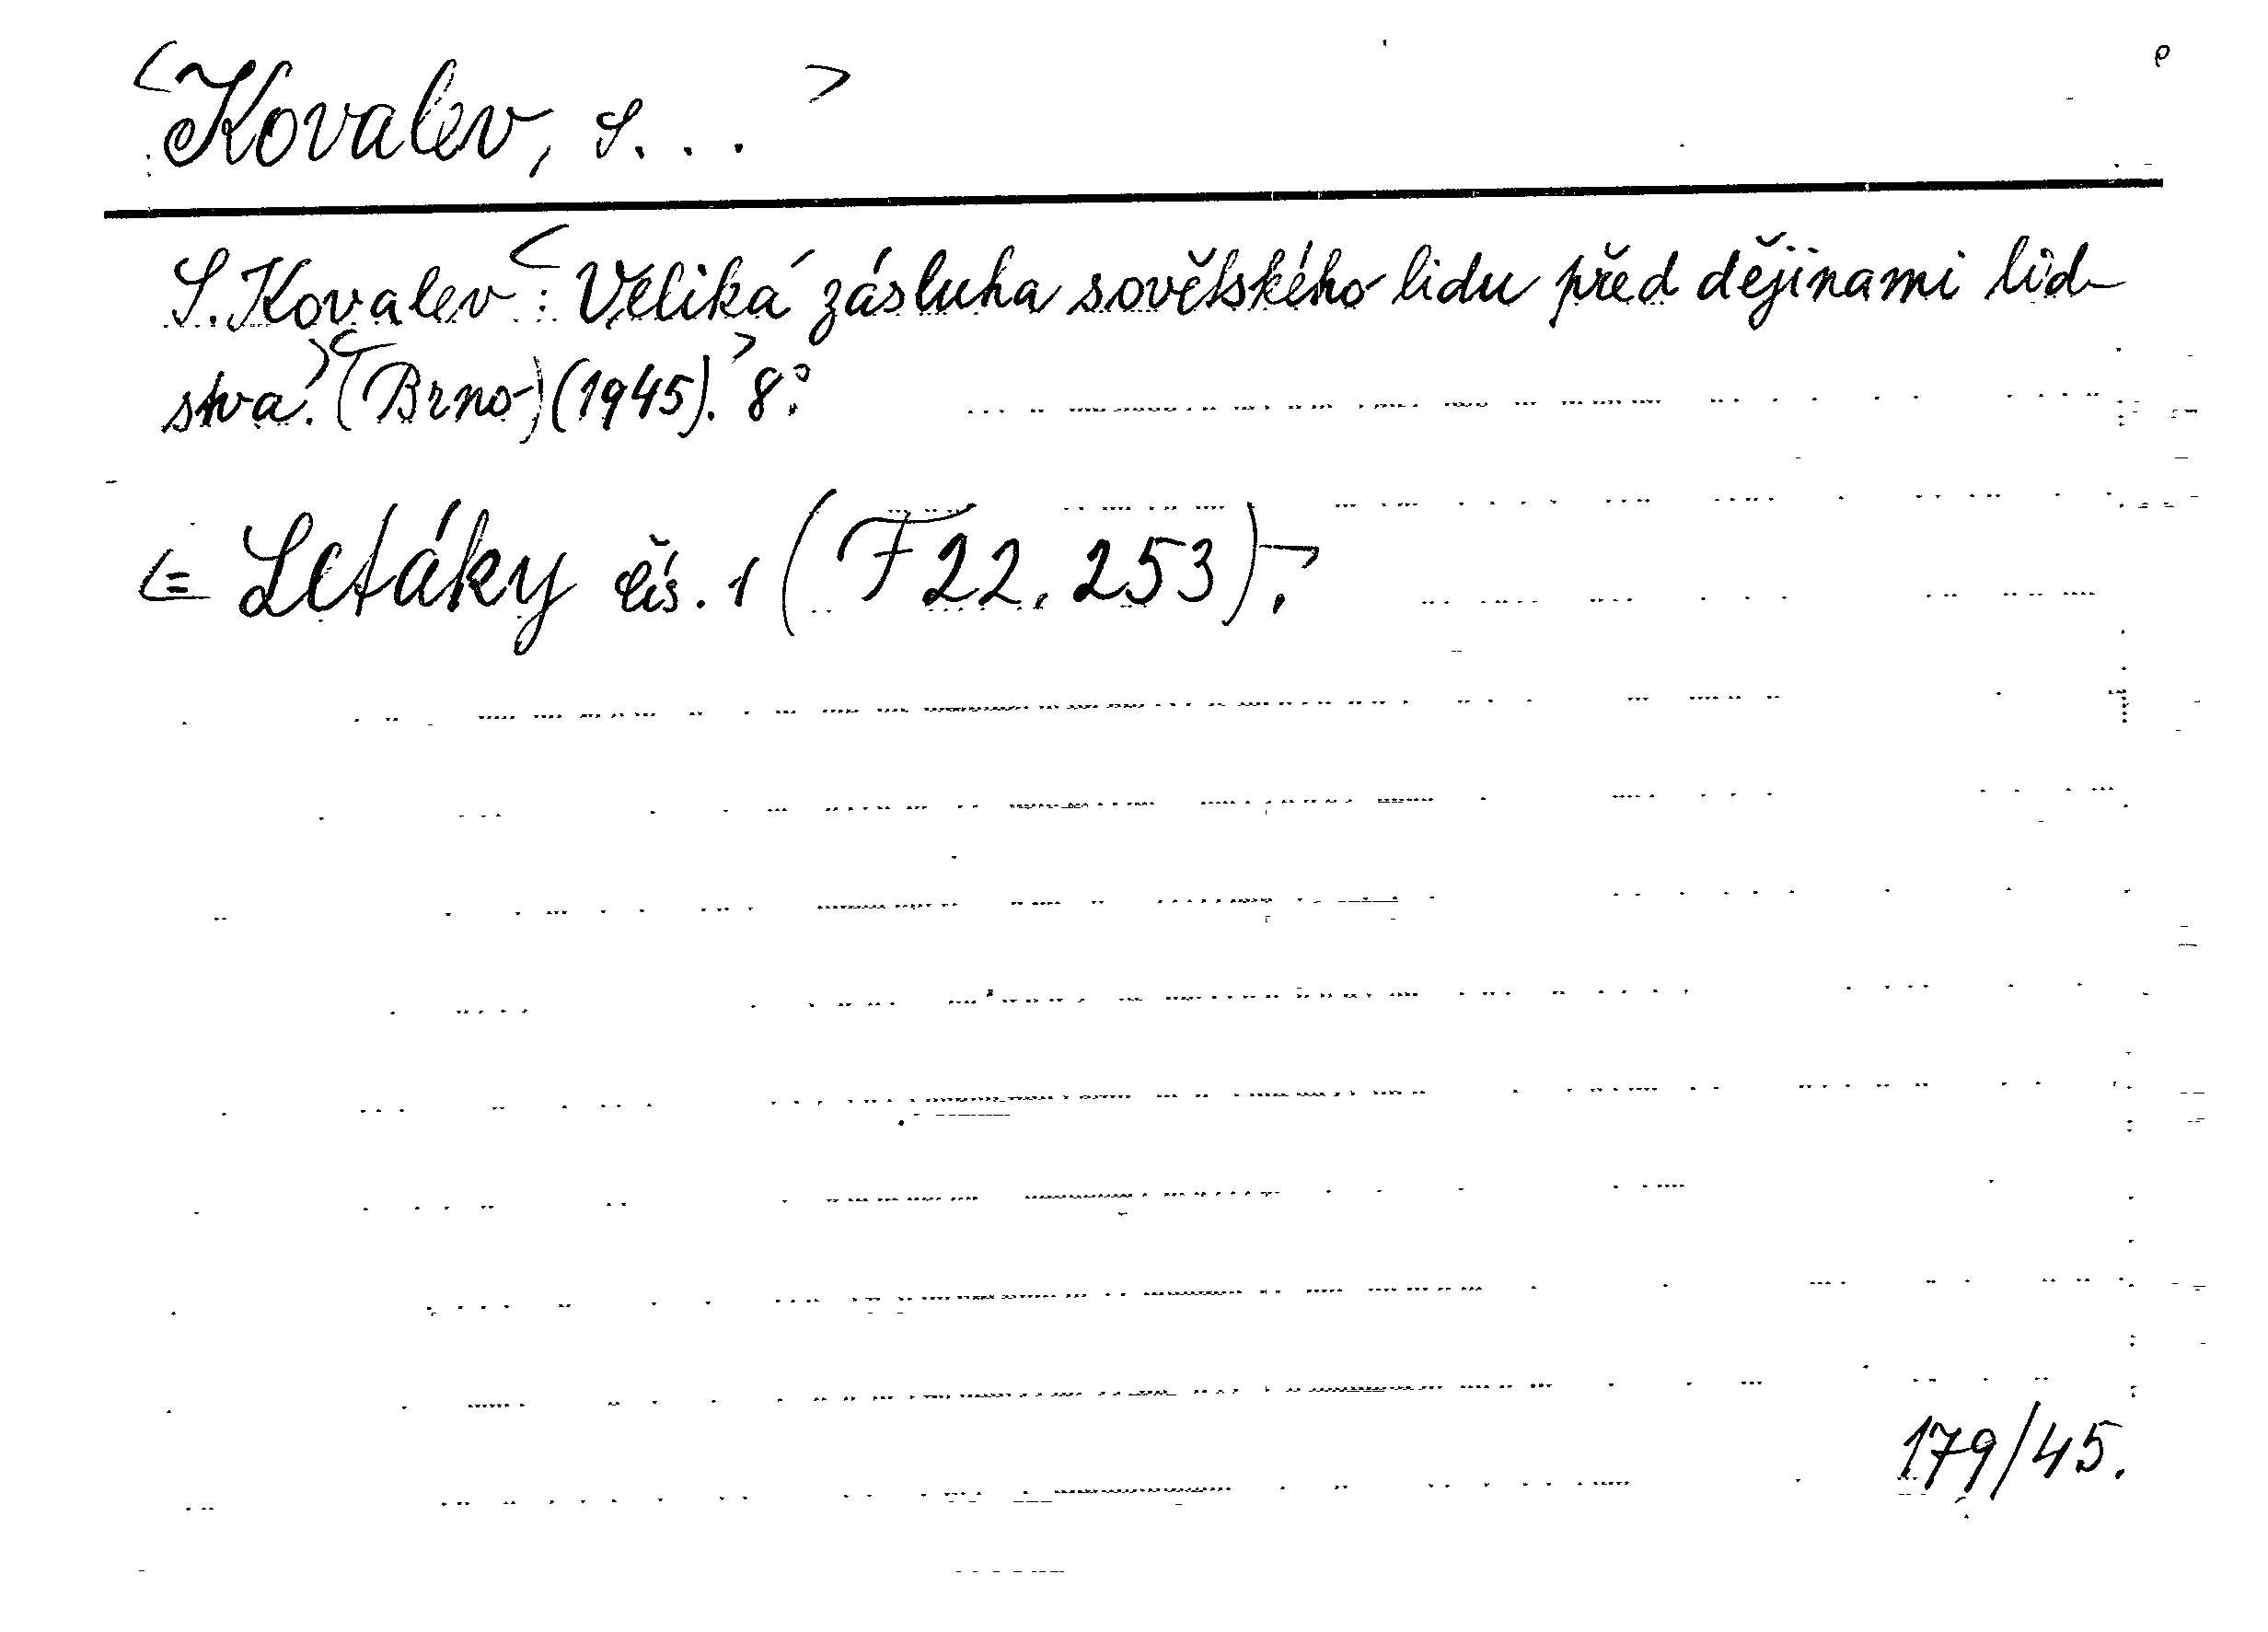 <Kovalev, S. . . >
S. Kovalev <: Veliká zásluha sovětského lidu před dějinami lid-
stva.> <(Brno) (1945).> 8°.
<= Letáky čís. 1 (F 22.253).>
179/45.